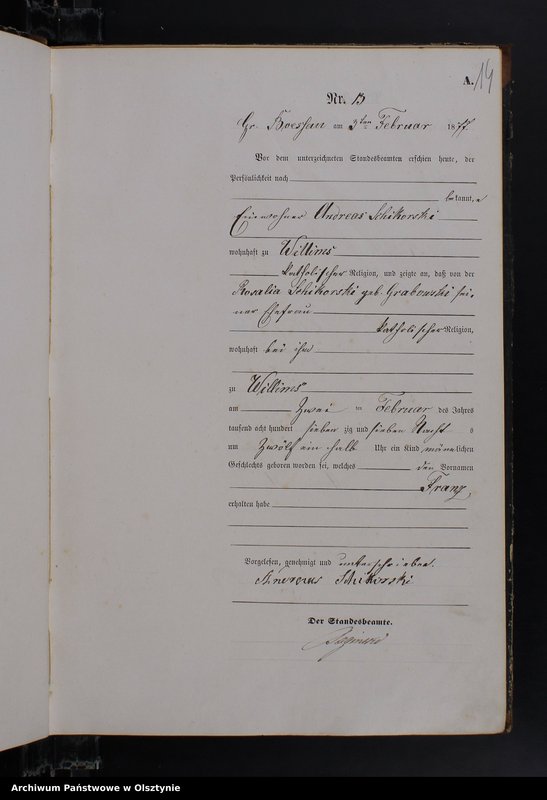 A. 14
Nr. 13
Gr. Boessau am 3ten Februar 1877.
Vor dem unterzeichneten Standesbeamten erschien heute, der
Persönlichkeit nach
bekannt,
Einwohner Andreas Schikorski
wohnhaft zu Willims
katholischer Religion, und zeigte an, daß von der
Rosalia Schikorski geb. Grabowski sei-
ner Ehefrau
katholischer Religion,
wohnhaft bei ihm
zu Willims
am Zwei ten Februar des Jahres
tausend acht hundert sieben zig und sieben Nacht s
um Zwölf ein halb Uhr ein Kind männlichen
Geschlechts geboren worden sei, welches den Vornamen
Franz
erhalten habe
Vorgelesen, genehmigt und unterschrieben.
Andreas Schikorski
Der Standesbeamte.
Archiwum Państwowe w Olsztynie